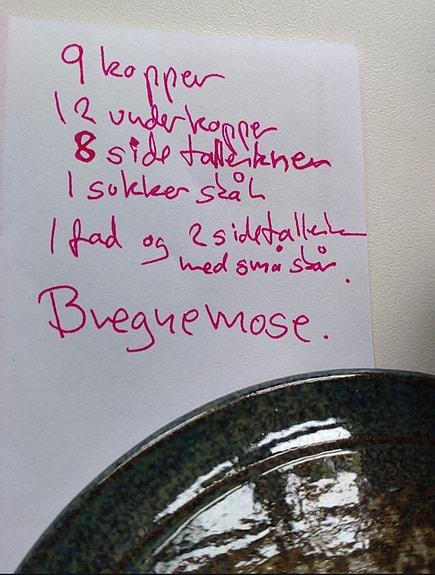 9 kopper
12 underkopper
8 side tallerknen
1 sukker skål
1 fad og 2 sidetallerk
med små skår.
Bregnemose.